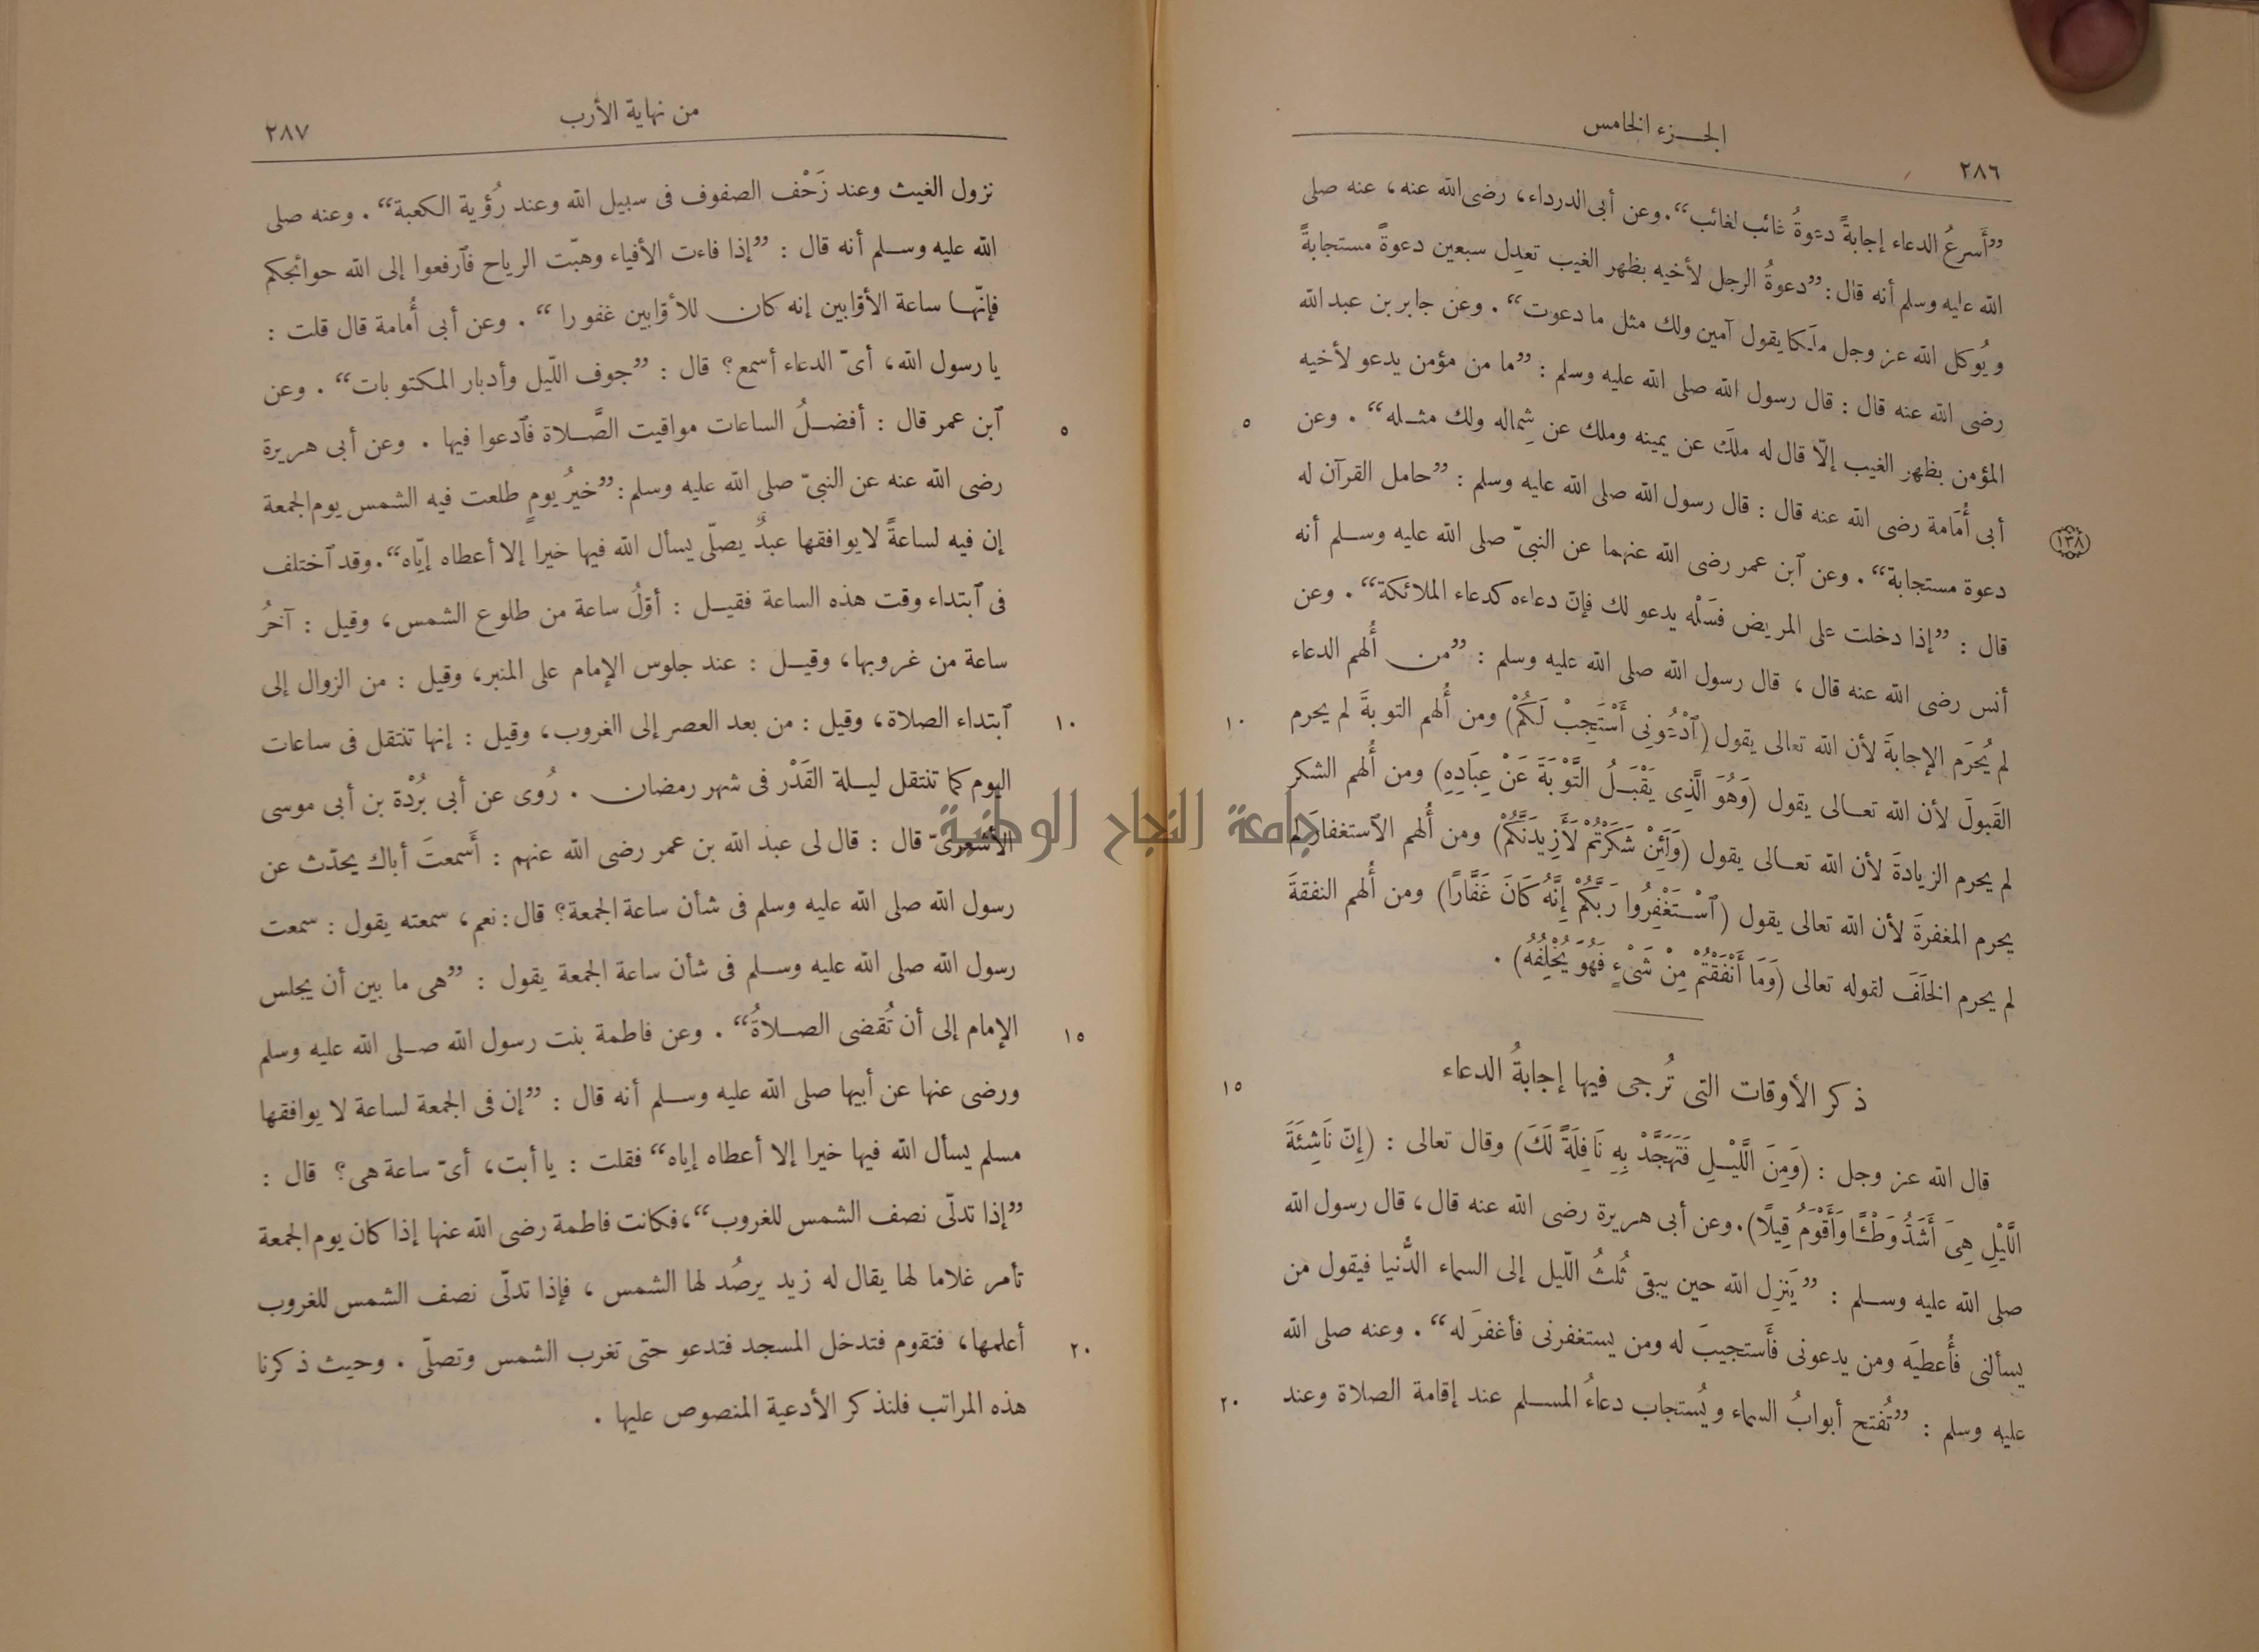 ٢٨٦
الجـزء الخامس
”أَسرعُ الدعاء إجابةً دعوةُ غائب لغائب“. وعن أبى الدرداء، رضى الله عنه، عنه صلى
الله عليه وسلم أنه قال: ”دعوةُ الرجل لأخيه بظهر الغيب تعدِل سبعين دعوةً مستجابةً
ويُوكل الله عز وجل ملَكا يقول آمين ولك مثل ما دعوت“. وعن جابر بن عبد الله
رضى الله عنه قال: قال رسول الله صلى الله عليه وسلم: ”ما من مؤمن يدعو لأخيه
المؤمن بظهر الغيب إلّا قال له ملَك عن يمينه وملك عن شِماله ولك مثـله“. وعن ٥
أبى أُمَامة رضى الله عنه قال: قال رسول الله صلى الله عليه وسلم: ”حامل القرآن له ١٣٨
دعوة مستجابة“. وعن ٱبن عمر رضى الله عنهما عن النبىّ صلى الله عليه وسـلم أنه
قال: ”إذا دخلت على المريض فسَلْه يدعو لك فإنّ دعاءه كدعاء الملائكة“. وعن
أنس رضى الله عنه قال، قال رسول الله صلى الله عليه وسلم: ”من أُلهم الدعاء
لم يُحرَم الإجابةَ لأن الله تعالى يقول (ٱدْعُونِى أَسْتَجِبْ لَكُمْ) ومن أُلهم التوبةَ لم يحرم ١٠
القَبولَ لأن الله تعـالى يقول (وَهُوَ الَّذِى يَقْبَـلُ التَّوْبَةَ عَنْ عِبَادِهِ) ومن أُلهم الشكر
لم يحرم الزيادةَ لأن الله تعـالى يقول (وَلَئِنْ شَكَرْتُمْ لَأَزِيدَنَّكُمْ) ومن أُلهم الٱستغفارَ لم
يحرم المغفرةَ لأن الله تعالى يقول (ٱسْـتَغْفِرُوا رَبَّكُمْ إِنَّهُ كَانَ غَفَّارًا) ومن أُلهم النفقةَ
لم يحرم الخلَفَ لقوله تعالى (وَمَا أَنْفَقْتُمْ مِنْ شَىْءٍ فَهُوَ يُخْلِفُهُ).
ذكر الأوقات التى تُرجى فيها إجابةُ الدعاء ١٥
قال الله عز وجل: (وَمِنَ اللَّيْـلِ فَتَهَجَّدْ بِهِ نَافِلَةً لَكَ) وقال تعالى: (إِنّ نَاشِئَةَ
اللَّيْلِ هِىَ أَشَدُّ وَطْـًٔا وَأَقْوَمُ قِيلًا). وعن أبى هريرة رضى الله عنه قال، قال رسول الله
صلى الله عليه وسـلم: ”يَنزِل الله حين يبقى ثُلثُ اللّيل إلى السماء الدُّنيا فيقول من
يسألنى فأُعطيَه ومن يدعونى فأَستجيبَ له ومن يستغفرنى فأغفرَ له“. وعنه صلى الله
عليه وسلم: ”تُفتح أبوابُ السماء ويُستجاب دعاءُ المسـلم عند إقامة الصلاة وعند ٢٠
من نهاية الأرب
٢٨٧
نزول الغيث وعند زَحْف الصفوف فى سبيل الله وعند رُؤية الكعبة“. وعنه صلى
الله عليه وسـلم أنه قال: ”إذا فاءت الأفياء وهبّت الرياح فٱرفعوا إلى الله حوائجكم
فإنّهـا ساعة الأوّابين إنه كان للأوّابين غفورا“. وعن أبى أُمامة قال قلت:
يا رسول الله، أىّ الدعاء أسمع؟ قال: ”جوف اللّيل وأدبار المكتوبات“. وعن
ٱبن عمر قال: أفضـلُ الساعات مواقيت الصَّـلاة فٱدعوا فيها. وعن أبى هريرة ٥
رضى الله عنه عن النبىّ صلى الله عليه وسلم: ”خيرُ يومٍ طلعت فيه الشمس يوم الجمعة
إن فيه لساعةً لا يوافقها عبدٌ يصلّى يسأل الله فيها خيرا إلا أعطاه إيّاه“. وقد ٱختلف
فى ٱبتداء وقت هذه الساعة فقيـل: أوّلُ ساعة من طلوع الشمس، وقيل: آخرُ
ساعة من غروبها، وقيـل: عند جلوس الإمام على المنبر، وقيل: من الزوال إلى
ٱبتداء الصلاة، وقيل: من بعد العصر إلى الغروب، وقيل: إنها تنتقل فى ساعات ١٠
اليوم كما تنتقل ليـلة القَدْر فى شهر رمضان. رُوى عن أبى بُرْدة بن أبى موسى
الأشعرىّ قال: قال لى عبد الله بن عمر رضى الله عنهم: أَسمعتَ أباك يحدّث عن
رسول الله صلى الله عليه وسلم فى شأن ساعة الجمعة؟ قال: نعم، سمعته يقول: سمعت
رسول الله صلى الله عليه وسـلم فى شأن ساعة الجمعة يقول: ”هى ما بين أن يجلس
الإمام إلى أن تُقضى الصـلاةُ“. وعن فاطمة بنت رسول الله صـلى الله عليه وسلم ١٥
ورضى عنها عن أبيها صلى الله عليه وسـلم أنه قال: ”إن فى الجمعة لساعة لا يوافقها
مسلم يسأل الله فيها خيرا إلا أعطاه إياه“ فقلت: يا أبت، أىّ ساعة هى؟ قال:
”إذا تدلّى نصف الشمس للغروب“، فكانت فاطمة رضى الله عنها إذا كان يوم الجمعة
تأمر غلاما لها يقال له زيد يرصُد لها الشمس، فإذا تدلّى نصف الشمس للغروب
أعلمها، فتقوم فتدخل المسجد فتدعو حتى تغرب الشمس وتصلّى. وحيث ذكرنا ٢٠
هذه المراتب فلنذكر الأدعية المنصوص عليها.
جامعة النجاح الوطنية